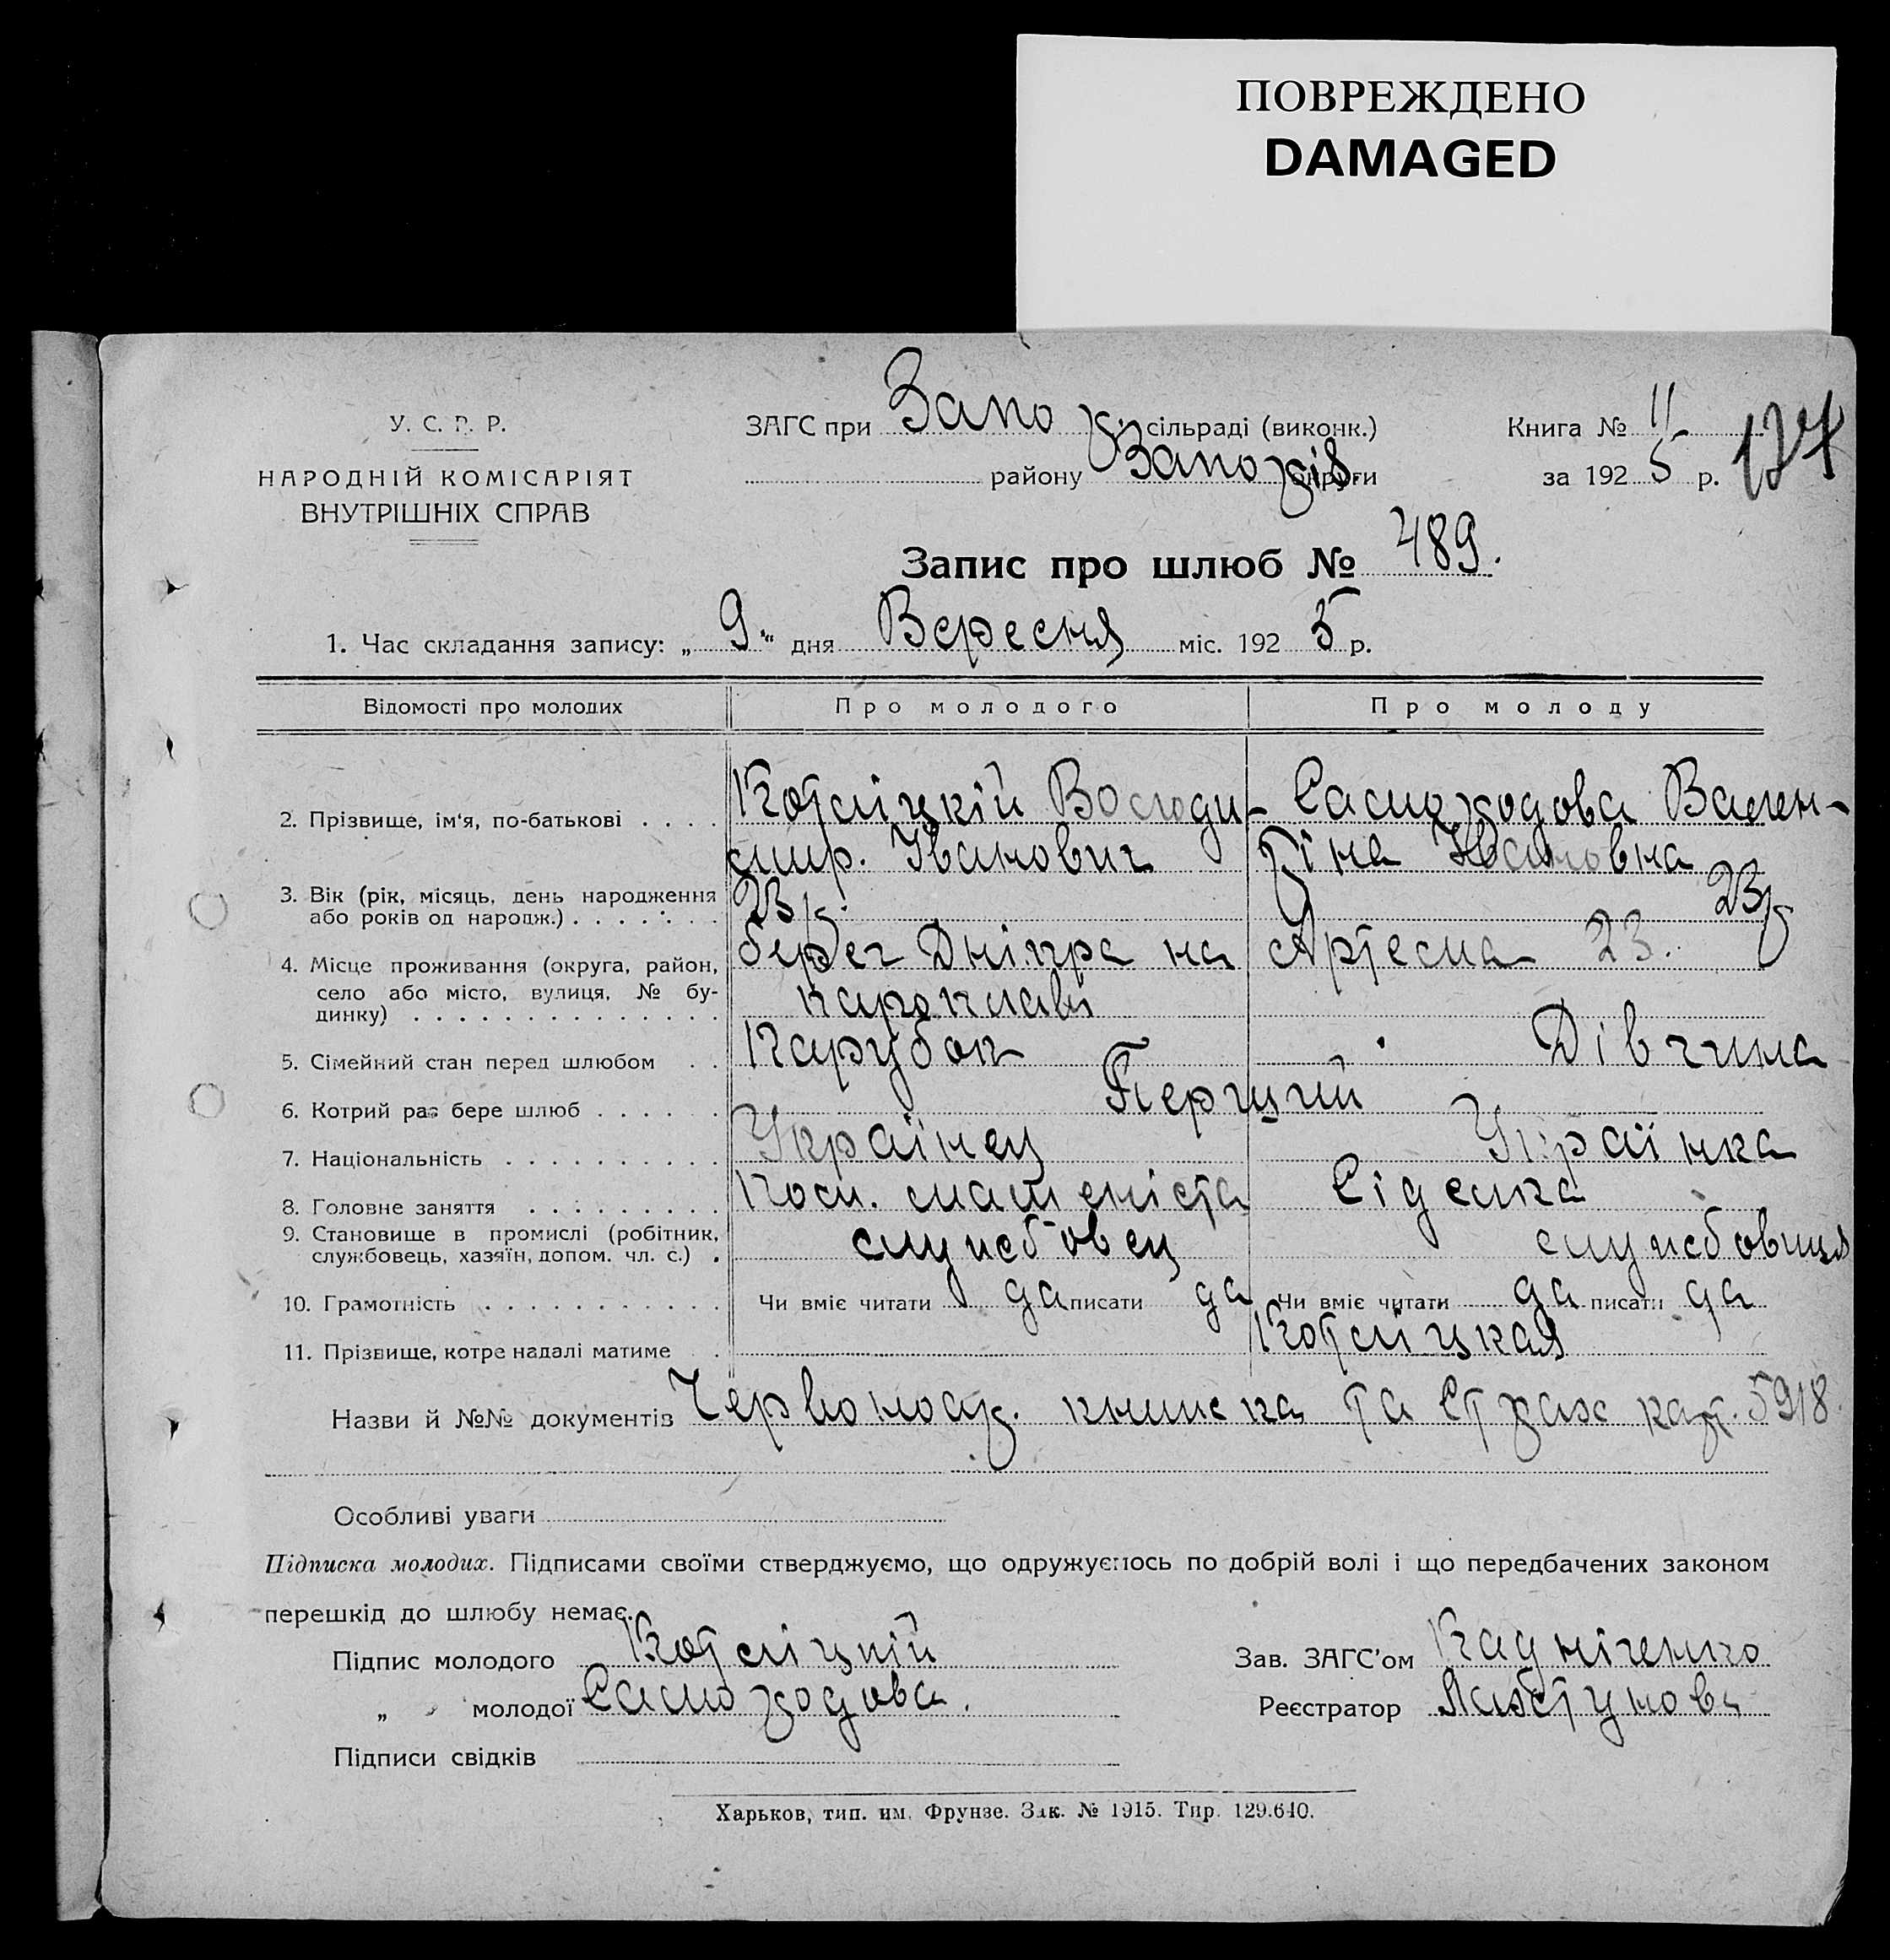 ПОВРЕЖДЕНО
DAMAGED
У. С. Р. Р.
НАРОДНІЙ КОМІСАРІЯТ
ВНУТРІШНІХ СПРАВ
ЗАГС при Запо сільраді (виконк.)
району Запорів. округи
Книга № 11
за 1925 р.
Запис про шлюб № 489.
1. Час складання запису: „ 9 “ дня Вересня міс. 1925 р.
Відомості про молодих
Про молодого
Про молоду
2. Прізвище, ім'я, по-батькові . . . .
Котліцкій Володи-
мир. Іванович
Самоходова Вален-
тіна Івановна
3. Вік (рік, місяць, день народження
або років од народж.) . . . . . . .
23 р.
23 р
4. Місце проживання (округа, район,
село або місто, вулиця, № бу-
динку) . . . . . . . . . . . . . .
берег Дніпра на
пароплаві
Артема 23.
5. Сімейний стан перед шлюбом . .
Парубок
Дівчина
6. Котрий раз бере шлюб . . . . . .
Перший
7. Національність . . . . . . . . . .
Українец
Українка
8. Головне заняття . . . . . . . . .
Пом. машеніста
Сіделка
9. Становище в промислі (робітник,
службовець, хазяїн, допом. чл. с.) .
службовец
службовиця
10. Грамотність . . . . . . . . . . .
Чи вміє читати да писати да
Чи вміє читати да писати да
11. Прізвище, котре надалі матиме .
Котліцкая
Назви й №№ документів Червоноар. книжка та Страх карт. 5918.
Особливі уваги
Підписка молодих. Підписами своїми стверджуємо, що одружуємось по добрій волі і що передбачених законом
перешкід до шлюбу немає.
Підпис молодого Котліцкій
Зав. ЗАГС'ом
„ молодої Самоходова.
Реєстратор
Підписи свідків
Харьков, тип. им. Фрунзе. Зак. № 1915. Тир. 129.640.